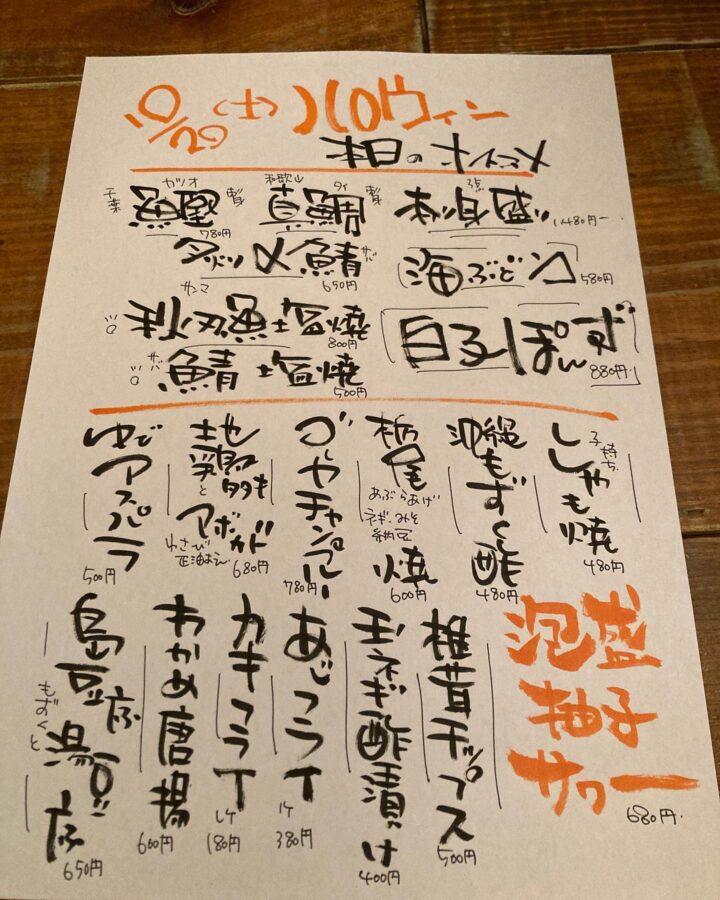 10/29(土)ハロウィン
本日のオススメ
千葉 カツオ 鰹 刺身 780円
和歌山 タイ 真鯛 刺身
3点 お刺身盛り 1480円
〆鯖 サバ 650円
海ぶどう 580円
サンマ 秋刀魚塩焼 800円
サバ 鯖塩焼 500円
白子ぽん酢 880円
子持ち ししゃも焼 480円
沖縄もずく酢 480円
栃尾 あぶらあげ ネギ・みそ 納豆 焼 600円
ゴーヤチャンプルー 780円
地鶏 アボカド わさび正油 680円
ゆでアスパラ 500円
泡盛
柚子
サワー
680円
椎茸チップス 500円
玉ネギ酢漬け 400円
あじフライ 1ケ 380円
カキフライ 1ケ 180円
わかめ唐揚 600円
島豆腐 もずくと 湯豆腐 650円